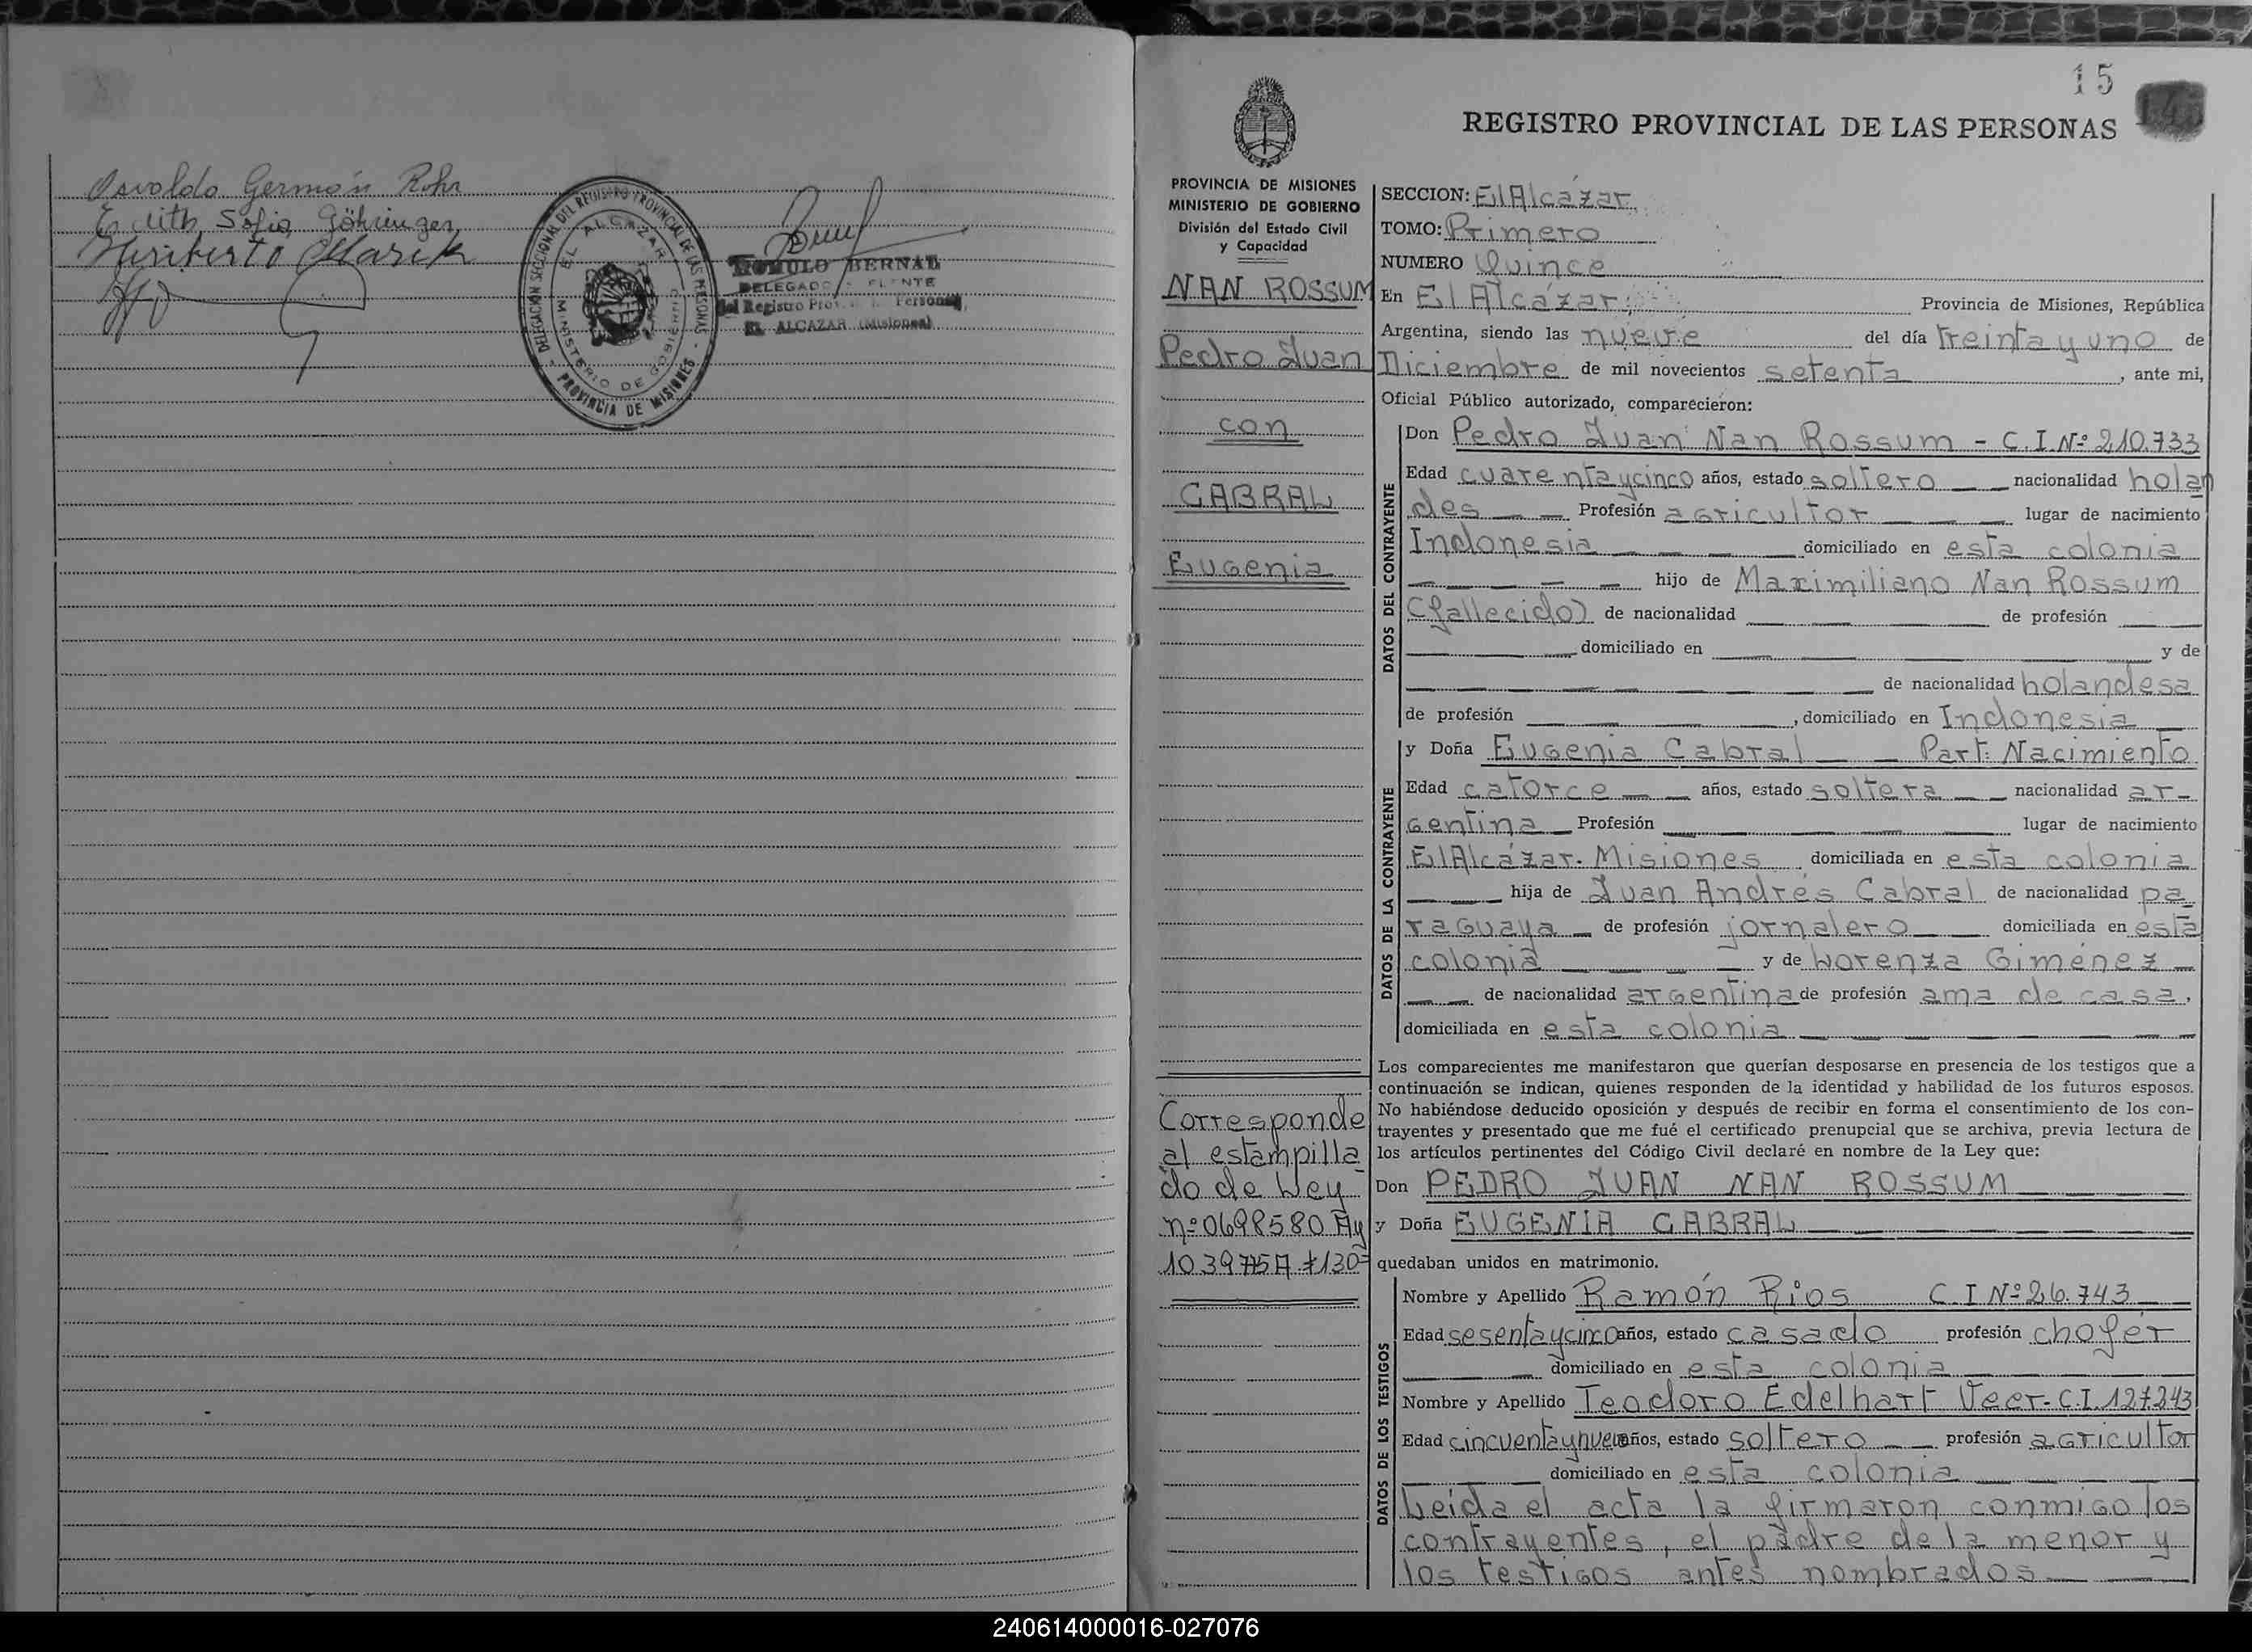 Osvaldo Germán Rohr
Edith Sofia Göhringer
Heriberto Marek
DELEGACIÓN SECCIONAL DEL REGISTRO PROVINCIAL DE LAS PERSONAS
EL ALCAZAR
MINISTERIO DE GOBIERNO
PROVINCIA DE MISIONES
ROMULO BERNAL
DELEGADO
del Registro Prov. Personas
EL ALCAZAR (Misiones)
15
REGISTRO PROVINCIAL DE LAS PERSONAS
PROVINCIA DE MISIONES
MINISTERIO DE GOBIERNO
División del Estado Civil
y Capacidad
NAN ROSSUM
Pedro Juan
con
CABRAL
Eugenia
Corresponde
al estampilla
do de Ley
nº 0698580 A y
1039775A \$130=
SECCION: El Alcázar
TOMO: Primero
NUMERO Quince
En El Alcázar, Provincia de Misiones, República
Argentina, siendo las nueve del día treinta y uno de
Diciembre de mil novecientos setenta, ante mi,
Oficial Público autorizado, comparecieron:
DATOS DEL CONTRAYENTE
Don Pedro Juan Nan Rossum - C.I.Nº 210.733
Edad cuarenta y cinco años, estado soltero — — nacionalidad holan
des — — Profesión agricultor — — — lugar de nacimiento
Indonesia — — — — domiciliado en esta colonia
— — — hijo de Maximiliano Nan Rossum
(fallecido) de nacionalidad — — — de profesión —
— — domiciliado en — — — — y de
— — — — — — de nacionalidad holandesa
de profesión — — —, domiciliado en Indonesia —
DATOS DE LA CONTRAYENTE
y Doña Eugenia Cabral — — Part. Nacimiento
Edad catorce — — años, estado soltera — — nacionalidad ar-
gentina — Profesión — — — lugar de nacimiento
El Alcázar. Misiones domiciliada en esta colonia
— — hija de Juan Andrés Cabral de nacionalidad pa
raguaya — de profesión jornalero — — domiciliada en esta
colonia — — — y de Lorenza Giménez —
— — de nacionalidad argentina de profesión ama de casa,
domiciliada en esta colonia — — — — —
Los comparecientes me manifestaron que querían desposarse en presencia de los testigos que a
continuación se indican, quienes responden de la identidad y habilidad de los futuros esposos.
No habiéndose deducido oposición y después de recibir en forma el consentimiento de los con-
trayentes y presentado que me fué el certificado prenupcial que se archiva, previa lectura de
los artículos pertinentes del Código Civil declaré en nombre de la Ley que:
Don PEDRO JUAN NAN ROSSUM — — —
y Doña EUGENIA CABRAL — — — — —
quedaban unidos en matrimonio.
DATOS DE LOS TESTIGOS
Nombre y Apellido Ramón Rios C.I Nº 26.743 —
Edad sesenta y cinco años, estado casado profesión chofer
— — domiciliado en esta colonia — — —
Nombre y Apellido Teodoro Edelhart Veer- C.I. 127.243
Edad cincuenta y nueve años, estado soltero — — profesión agricultor
— — domiciliado en esta colonia — — —
Leida el acta la firmaron conmigo los
contrayentes, el padre de la menor y
los testigos antes nombrados — —
240614000016-027076